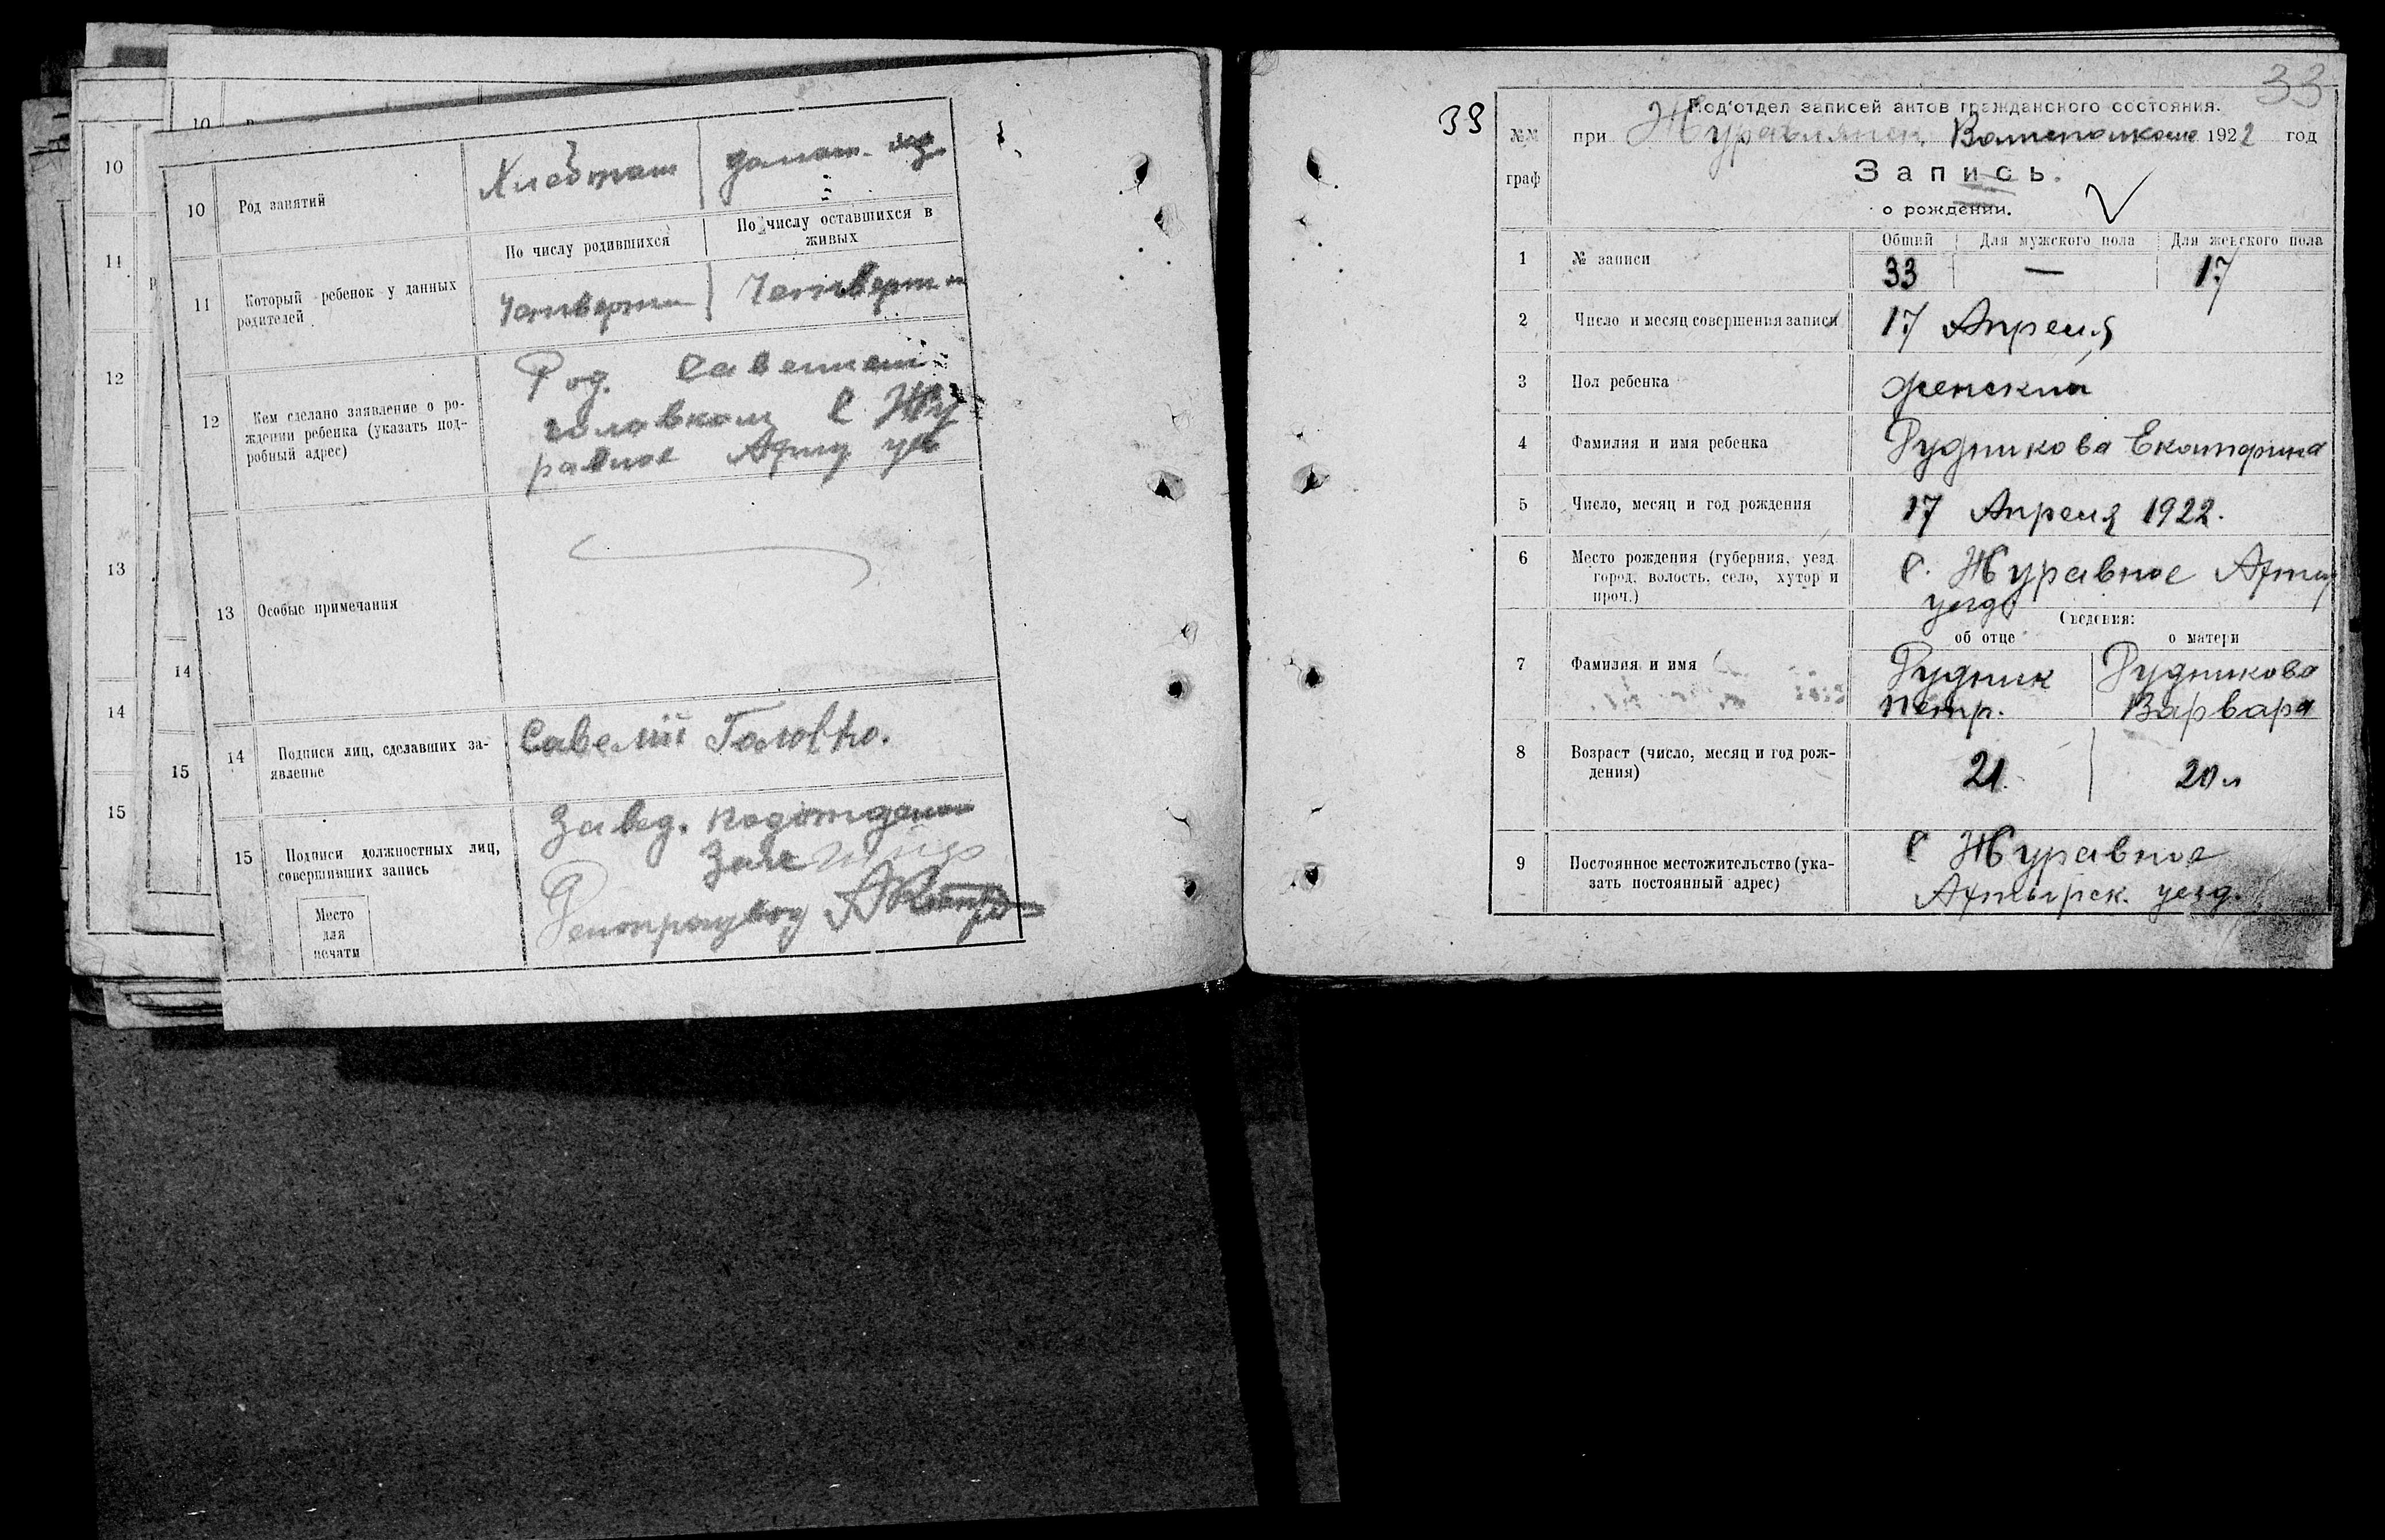 10
11
12
13
14
15
10
14
15
10 Род занятий
Хлебопаш домаш.
По числу родившихся
По числу оставшихся в
живых
11 Который ребенок у данных
родителей
Четверти Четверти
12 Кем сделано заявление о ро-
ждении ребенка (указать под-
робный адрес)
Род. Савелием
головком С Жу
равное Ахты уез
13 Особые примечания
14 Подписи лиц, сделавших за-
явление
Савелiй Головко.
15 Подписи должностных лиц,
совершивших запись
Завед. подотделом
Загс
Делопроизвод
Место
для
печати
33
33
Под'отдел записей актов гражданского состояния.
№№
граф
при Журавлянск. Волисполкоме 1922 год
Запись.
о рождении.
Общий Для мужского пола Для женского пола
1 № записи 33 — 17
2 Число и месяц совершения записи 17 Апреля
3 Пол ребенка женский
4 Фамилия и имя ребенка Рудникова Екатерина
5 Число, месяц и год рождения 17 Апреля 1922.
6 Место рождения (губерния, уезд
город, волость, село, хутор и
проч.)
С. Журавное Ахты
уезд
Сведения:
об отце о матери
7 Фамилия и имя
Рудник Рудникова
Петр. Варвара
8 Возраст (число, месяц и год рож-
дения)
21. 20 л
9 Постоянное местожительство (ука-
зать постоянный адрес)
С Журавное
Ахтырск. уезд.